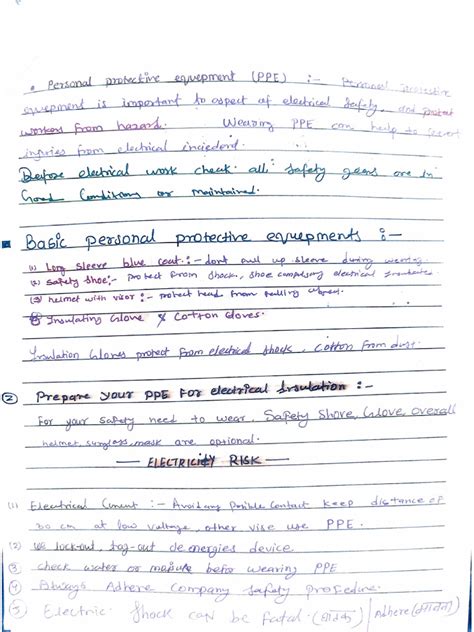 • Personal protective equepment (PPE) :- Personal protective
equepment is important to aspect of electrical safety, and protect
workers from hazard. Wearing PPE can help to prevent
injuries from electrical inciedend.
Before electrical work check all safety gears are in
Good Conditions or maintained.
Basic personal protective equepments :-
(1) Long sleeve blue coat :- dont pull up sleeve during wearing
(2) Safety Shoe:- Protect from Shock, Shoe comprising electrical
(3) helmet with visor :- protect head from falling
Insulating Glove & Cotton Gloves.
Insulation Gloves protect from electrical shock, Cotton from dust.
(2) Prepare your PPE For electrical Insulation :-
For your Safety need to wear, Safety Shove, Glove, overall
helmet, mask are optional.
— ELECTRICITY RISK —
(1) Electrical Current :- Avoid any Posible Contact keep distance of
30 cm at low voltage other vise use PPE.
(2) lock-out, tag-out de energies device
(3) check water or before wearing PPE
(4) Always Adhere Company Safety
(5) Electric Shock can be fatal. (घातक) | Adhere